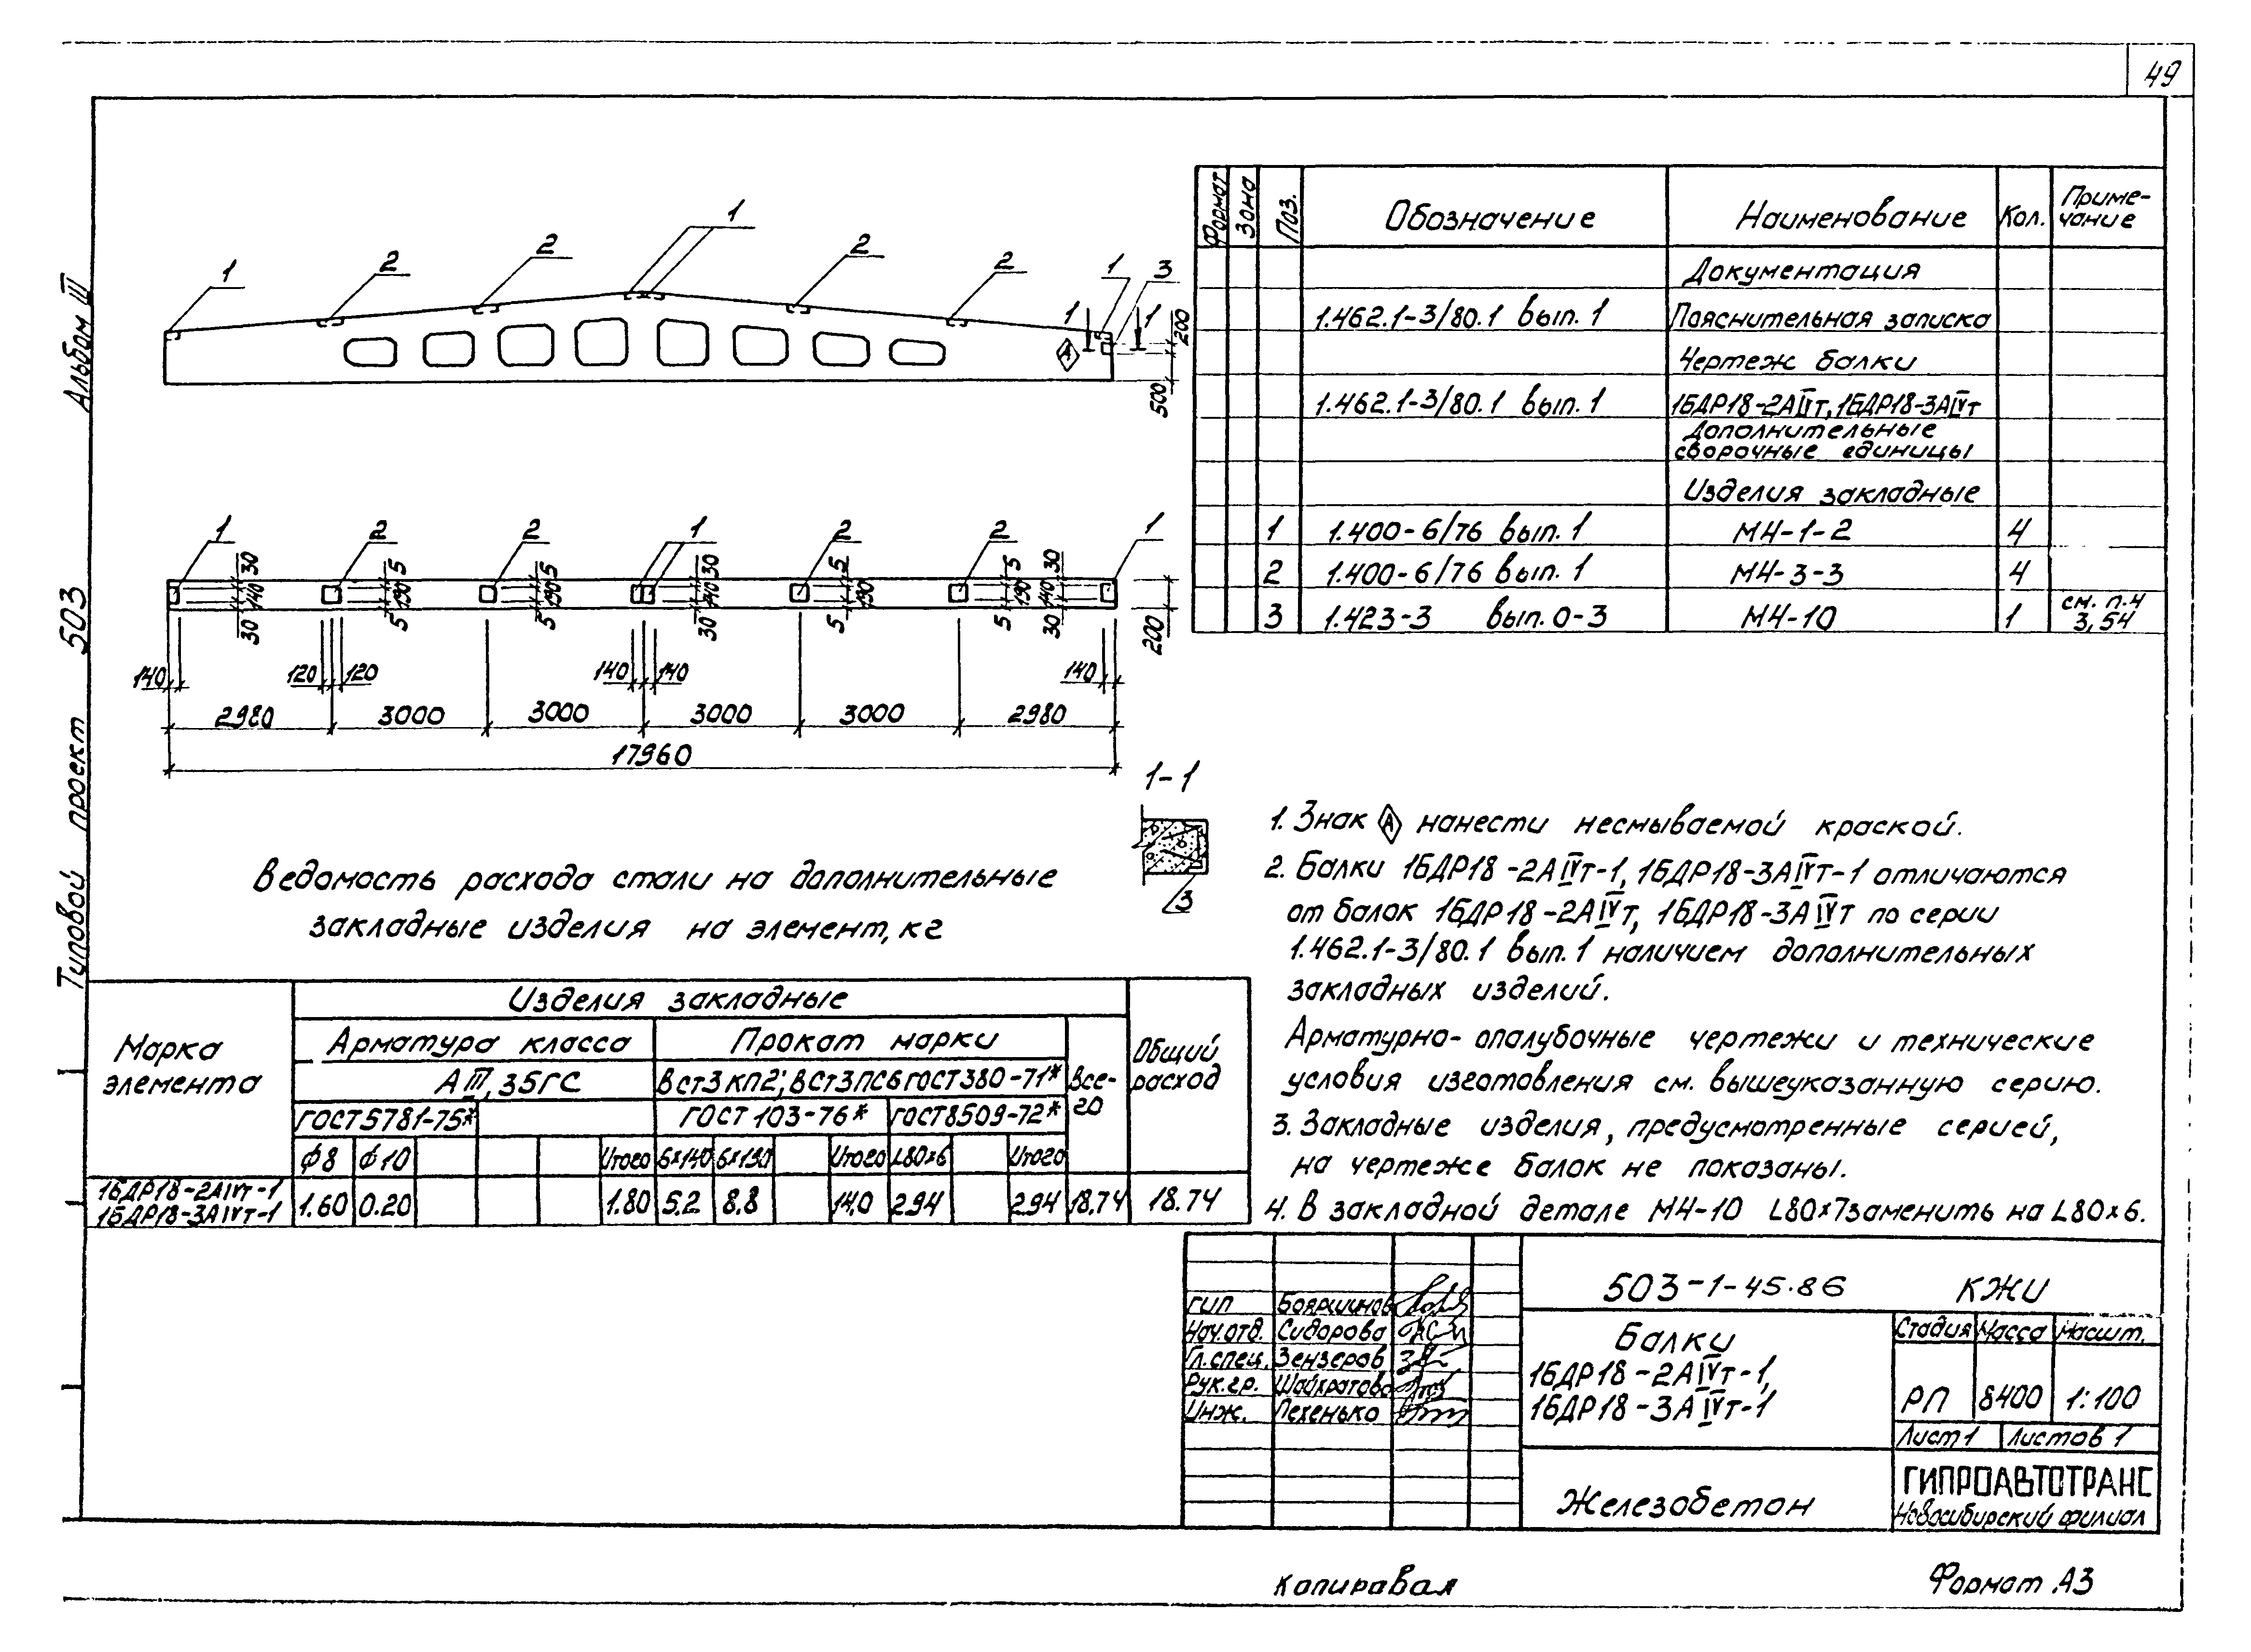 49
Альбом III
Типовой проект 503
1
2
2
1
2
2
1
3
1
1
A
200
500
1
2
2
1
2
2
1
30
140
30
5
190
5
5
190
5
30
140
30
5
190
5
5
190
5
30
140
30
200
140
120
120
140
140
140
2980
3000
3000
3000
3000
2980
17960
1-1
3
Формат
Зона
Поз.
Обозначение
Наименование
Кол.
Приме-
чание
Документация
1.462.1-3/80.1 вып. 1 Пояснительная записка
Чертеж балки
1.462.1-3/80.1 вып. 1 1БДР18-2АIVт, 1БДР18-3АIVт
Дополнительные
сборочные единицы
Изделия закладные
1 1.400-6/76 вып. 1 МН-1-2 4
2 1.400-6/76 вып. 1 МН-3-3 4
3 1.423-3 вып. 0-3 МН-10 1 см. п.4
3,54
1. Знак A нанести несмываемой краской.
2. Балки 1БДР18-2АIVт-1, 1БДР18-3АIVт-1 отличаются
от балок 1БДР18-2АIVт, 1БДР18-3АIVт по серии
1.462.1-3/80.1 вып. 1 наличием дополнительных
закладных изделий.
Арматурно-опалубочные чертежи и технические
условия изготовления см. вышеуказанную серию.
3. Закладные изделия, предусмотренные серией,
на чертеже балок не показаны.
4. В закладной детале МН-10 L80×7 заменить на L80×6.
Ведомость расхода стали на дополнительные
закладные изделия на элемент, кг
Марка
элемента
Изделия закладные
Арматура класса
АIII, 35ГС
ГОСТ 5781-75*
Прокат марки
Вст3кп2; Вст3пс6 ГОСТ 380-71*
ГОСТ 103-76* ГОСТ 8509-72*
Все-
го
Общий
расход
ф8 ф10 Итого 6×140 6×190 Итого L80×6 Итого
1БДР18-2АIVт-1
1БДР18-3АIVт-1
1.60 0.20 1.80 5.2 8.8 14,0 2.94 2.94 18.74 18.74
503-1-45.86 КЖИ
ГИП Бояршинов
Нач.отд. Сидорова
Гл.спец. Зензеров
Рук.гр.
Инж. Пехенько
Балки
1БДР18-2АIVт-1,
1БДР18-3АIVт-1
Стадия Масса Масшт.
РП 8400 1:100
Лист 1 Листов 1
Железобетон
ГИПРОАВТОТРАНС
Новосибирский филиал
Копировал
Формат А3